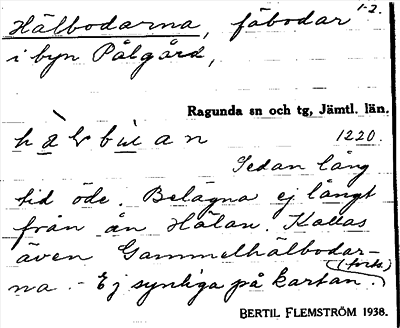 1-2.
Hälbodarna, fäbodar
i byn Pålgård,
Ragunda sn och tg, Jämtl. län.
1220.
Sedan lång
tid öde. Belägna ej långt
från ån Hälan. Kallas
även Gammelhälbodar-
na. - Ej synliga på kartan.
(forts.)
BERTIL FLEMSTRÖM 1938.